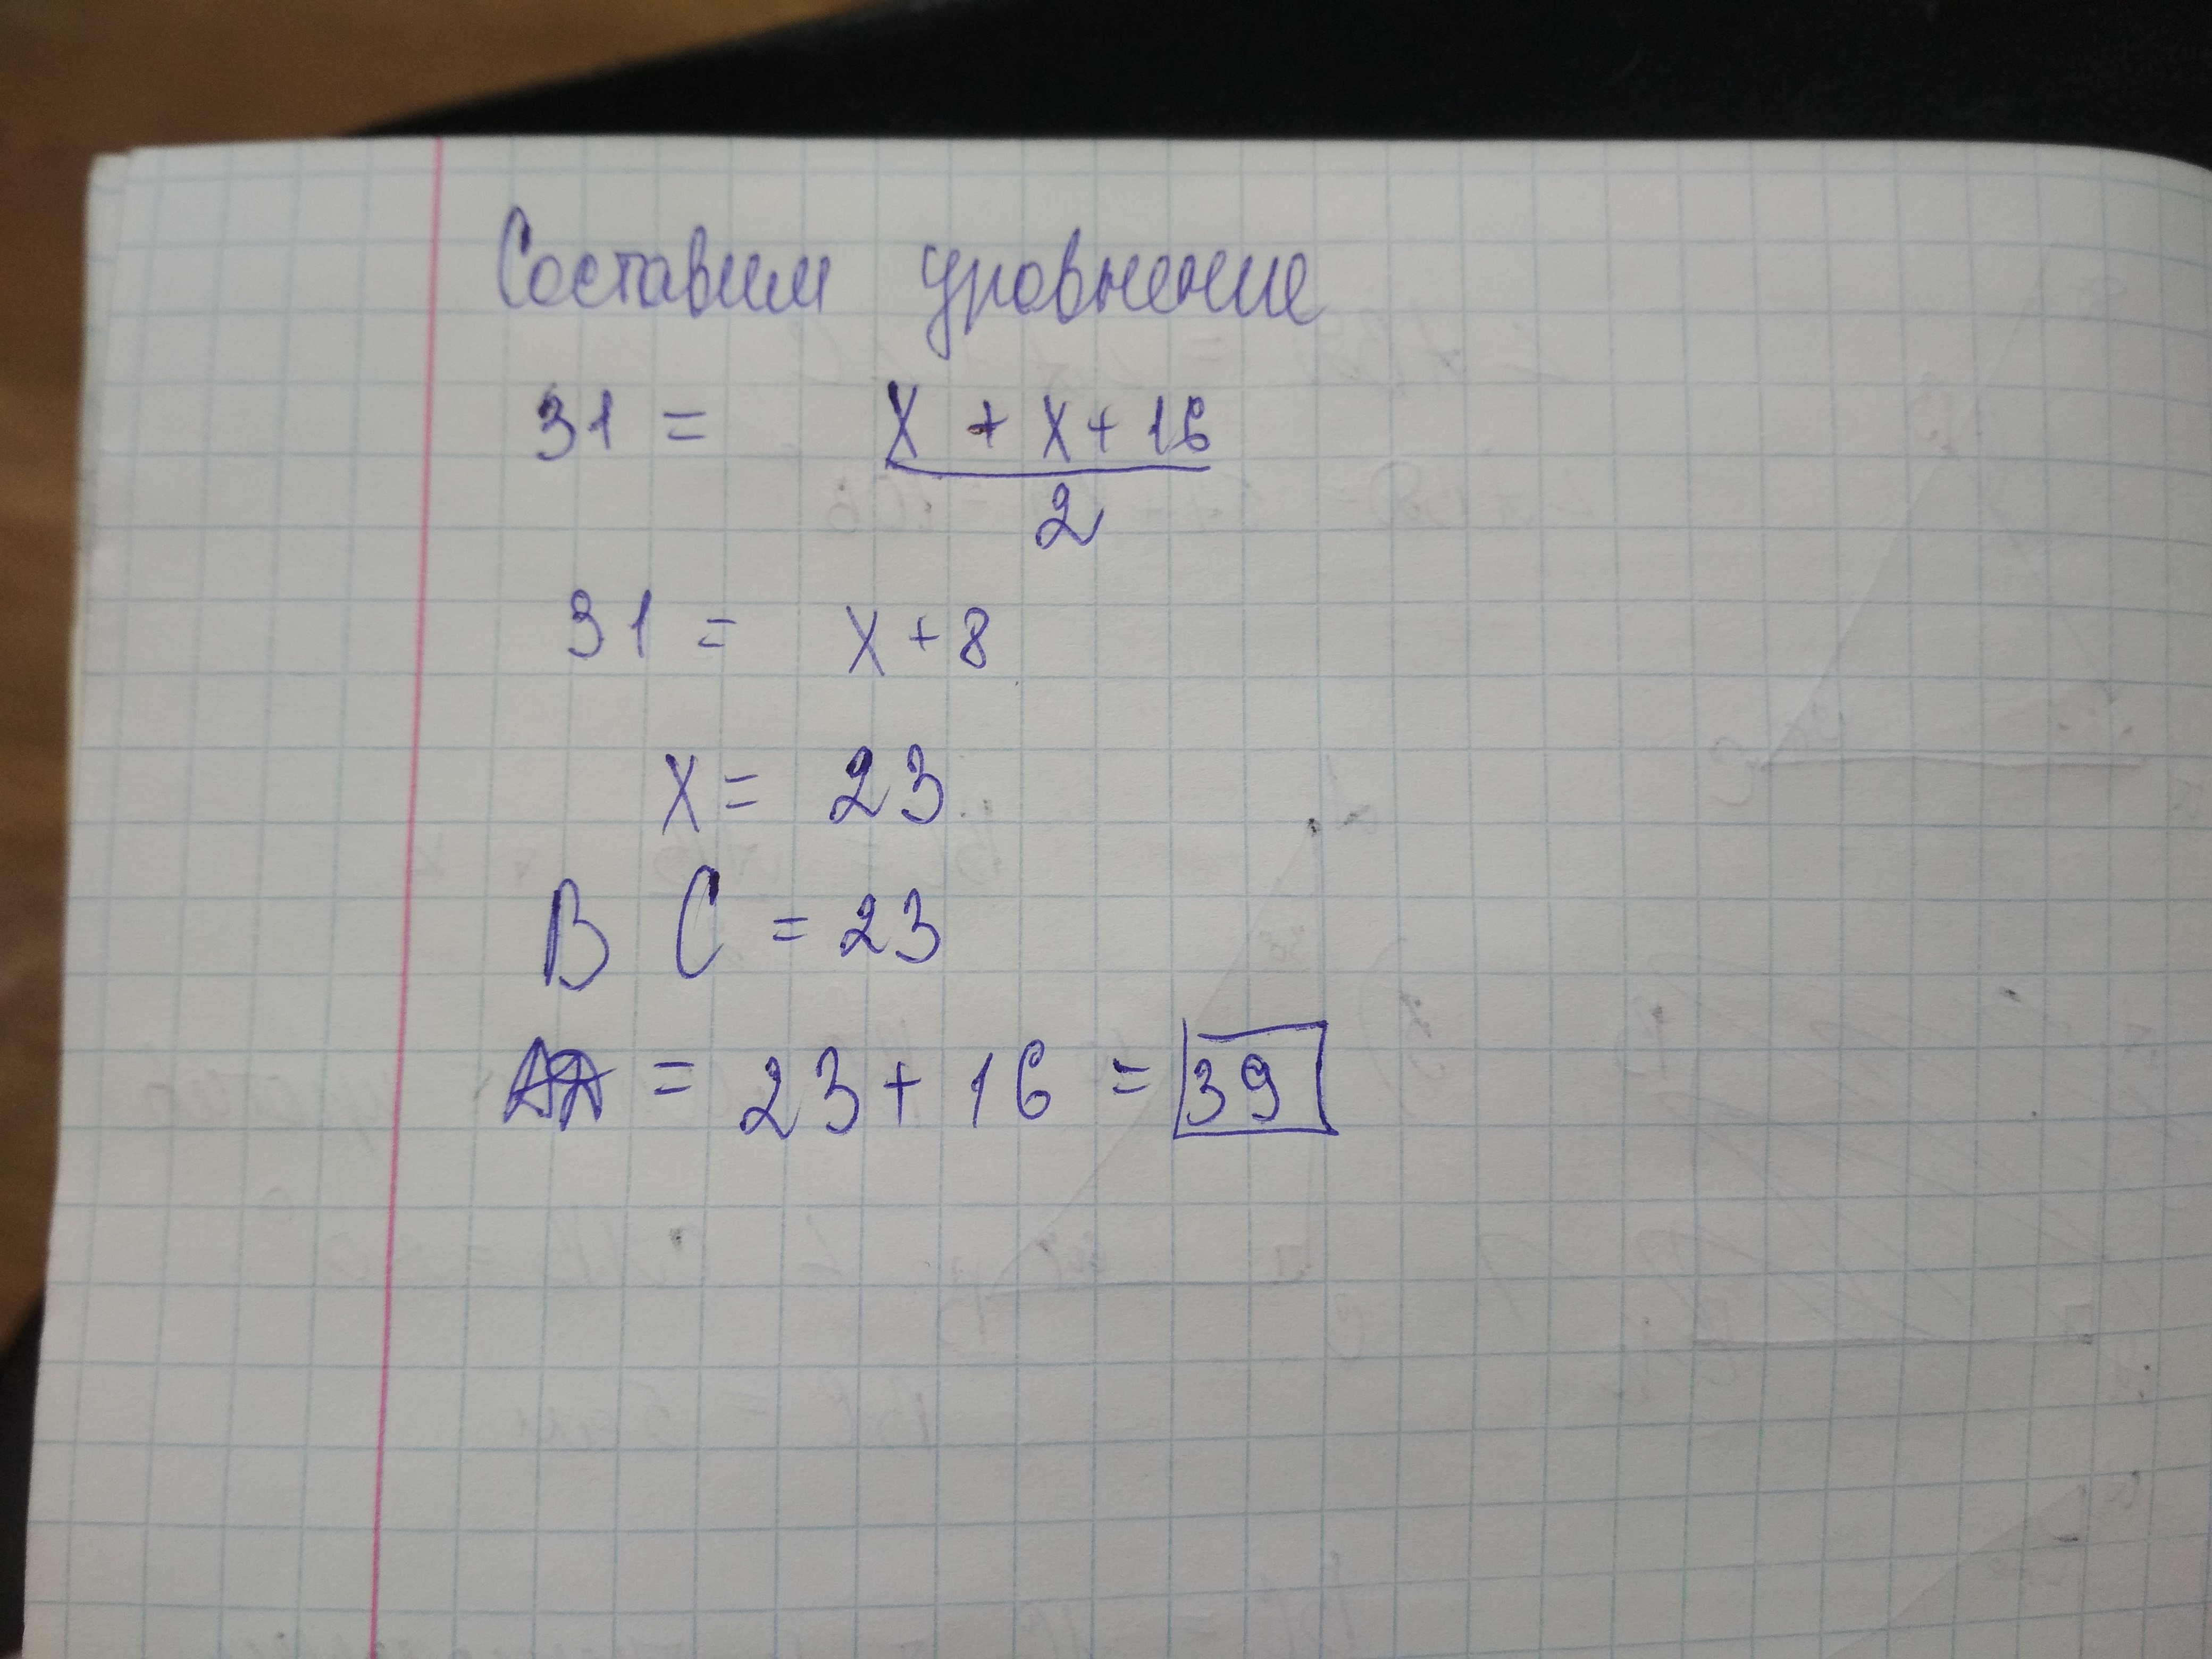 Составим уровнение
31 = x + x + 16
2
31 = x + 8
x = 23
B C = 23
= 23 + 16 = 39